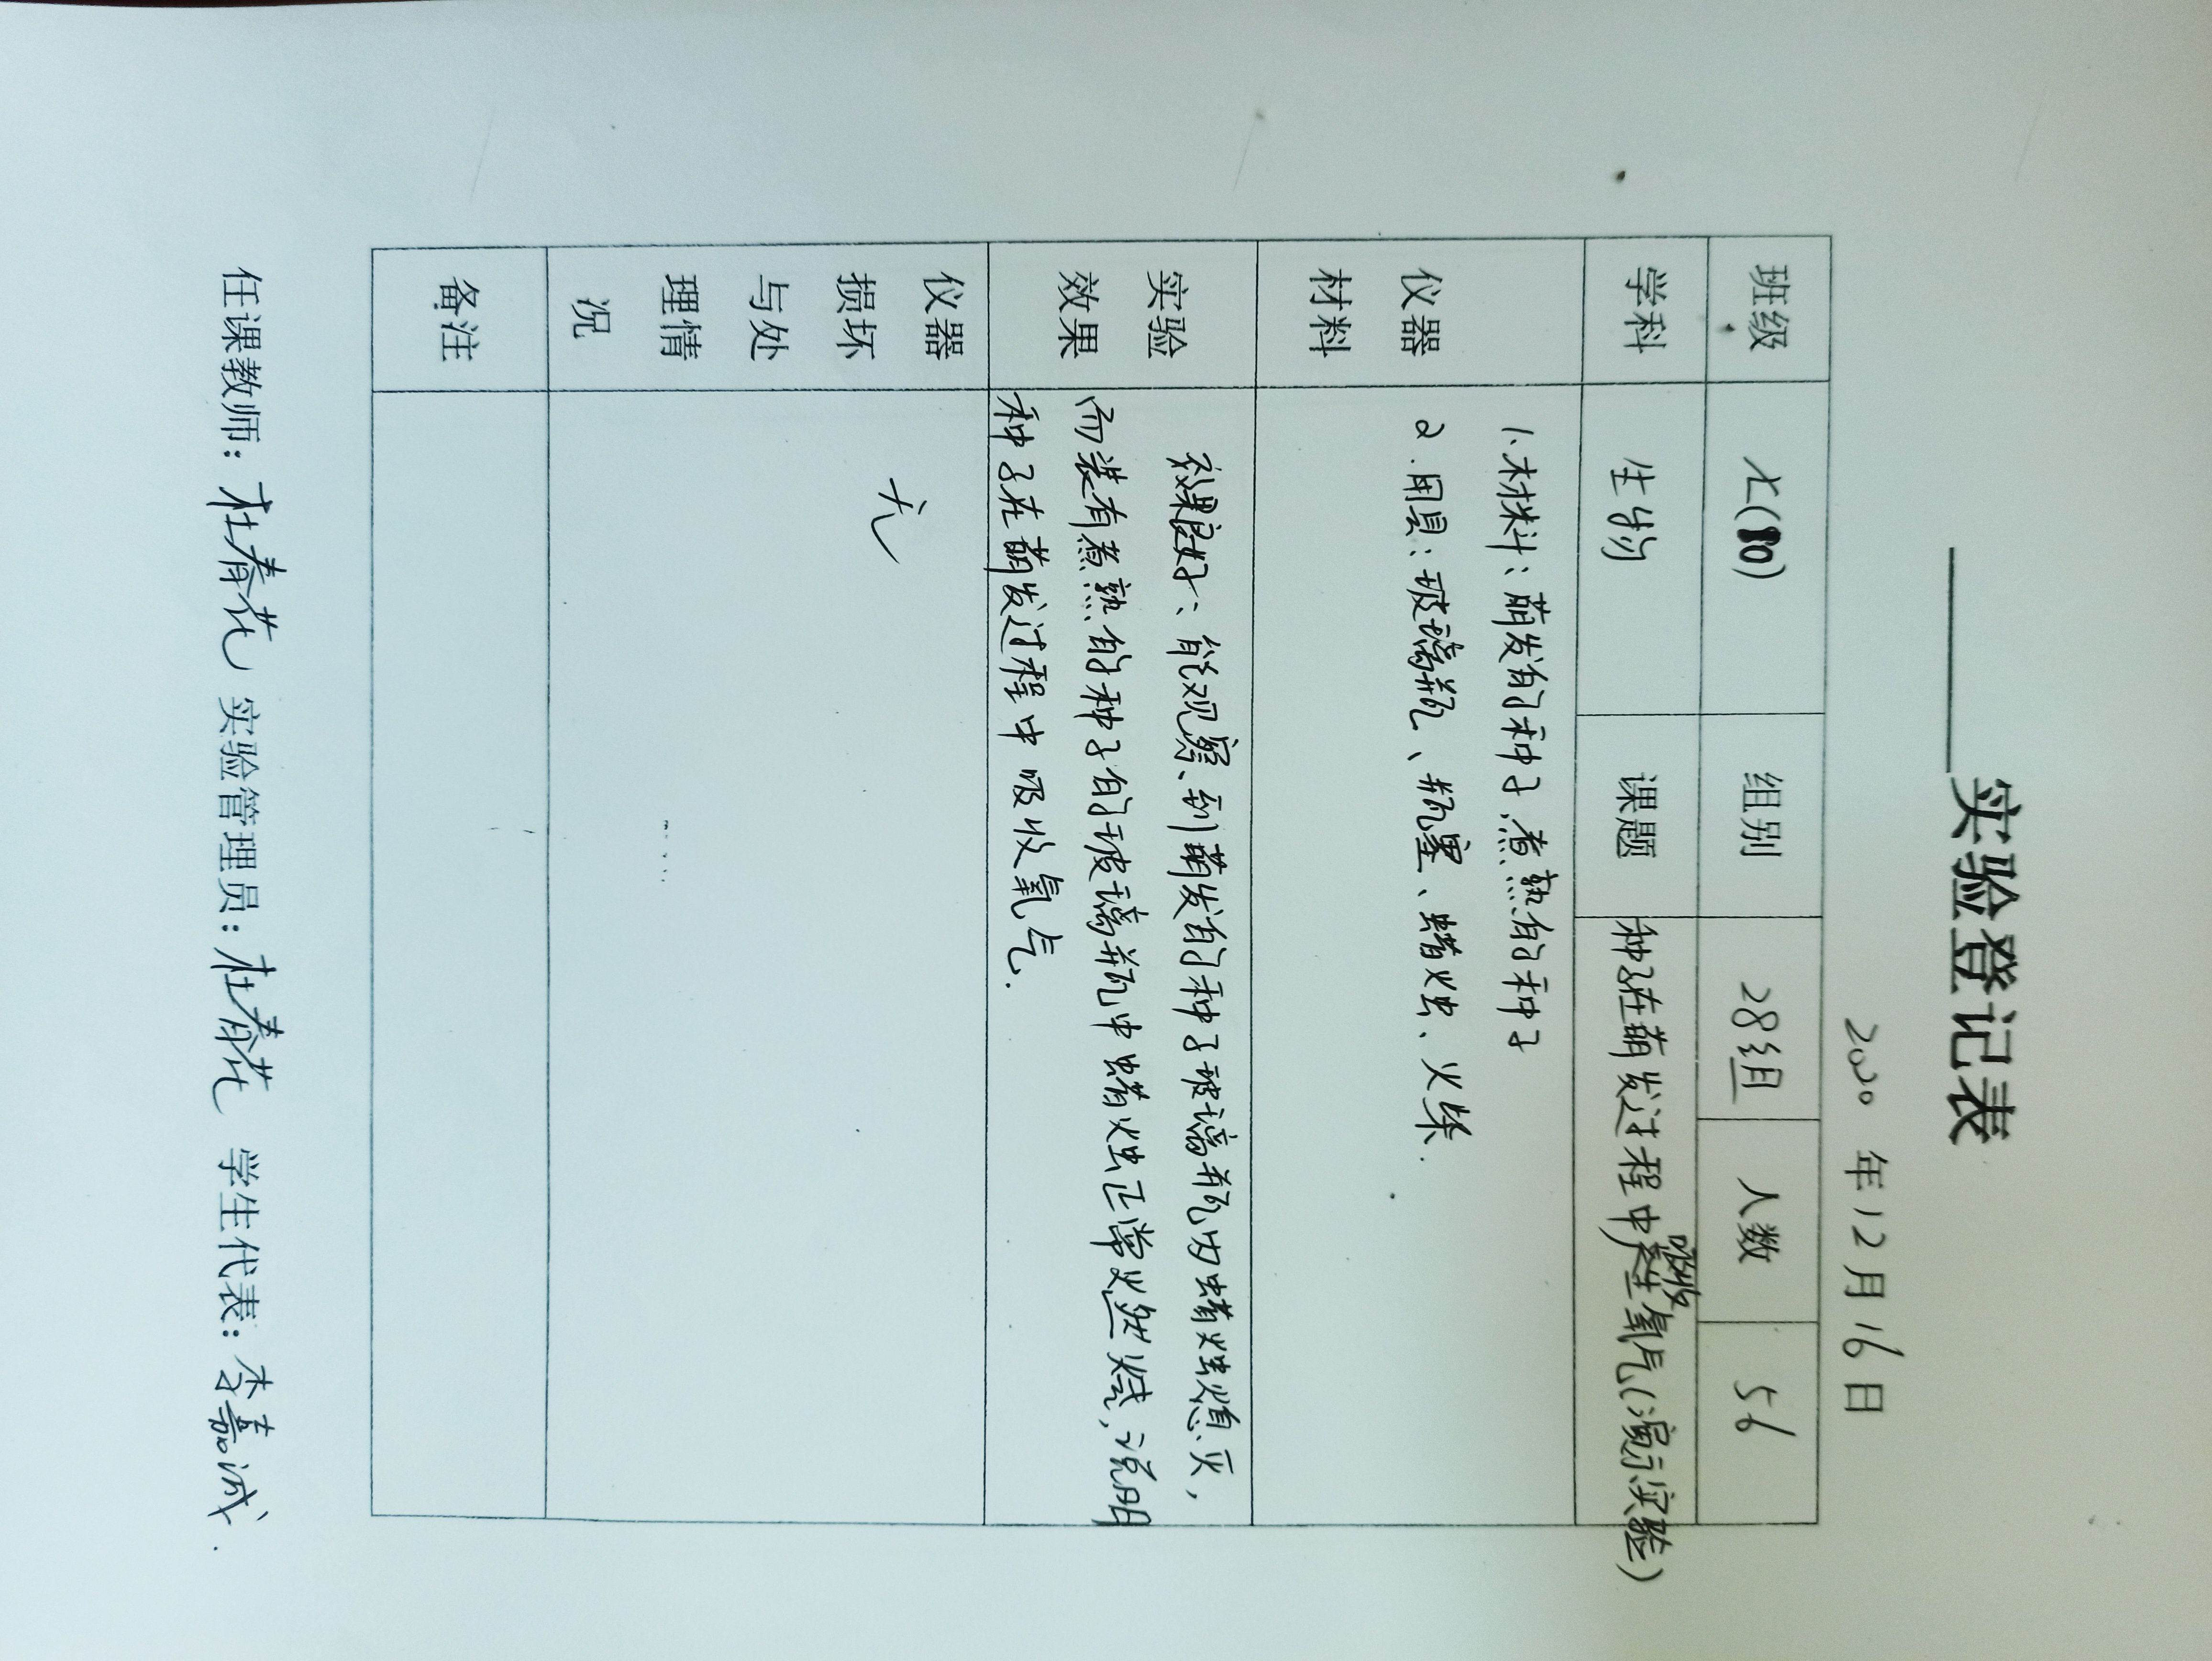 实验登记表
2020 年12月16日
班级 七(10) 组别 28组 人数 56
学科 生物 课题 种子在萌发过程中吸收氧气(演示实验)
仪器
材料
1.材料:萌发的种子,煮熟的种子
2.用具:玻璃瓶、瓶塞、蜡烛、火柴.
实验
效果
效果良好:能观察到萌发的种子玻璃瓶内蜡烛熄灭,
而装有煮熟的种子的玻璃瓶中蜡烛正常燃烧,说明
种子在萌发过程中吸收氧气.
仪器
损坏
与处
理情
况
无
备注
任课教师:杜春花 实验管理员:杜春花 学生代表:李嘉诚.